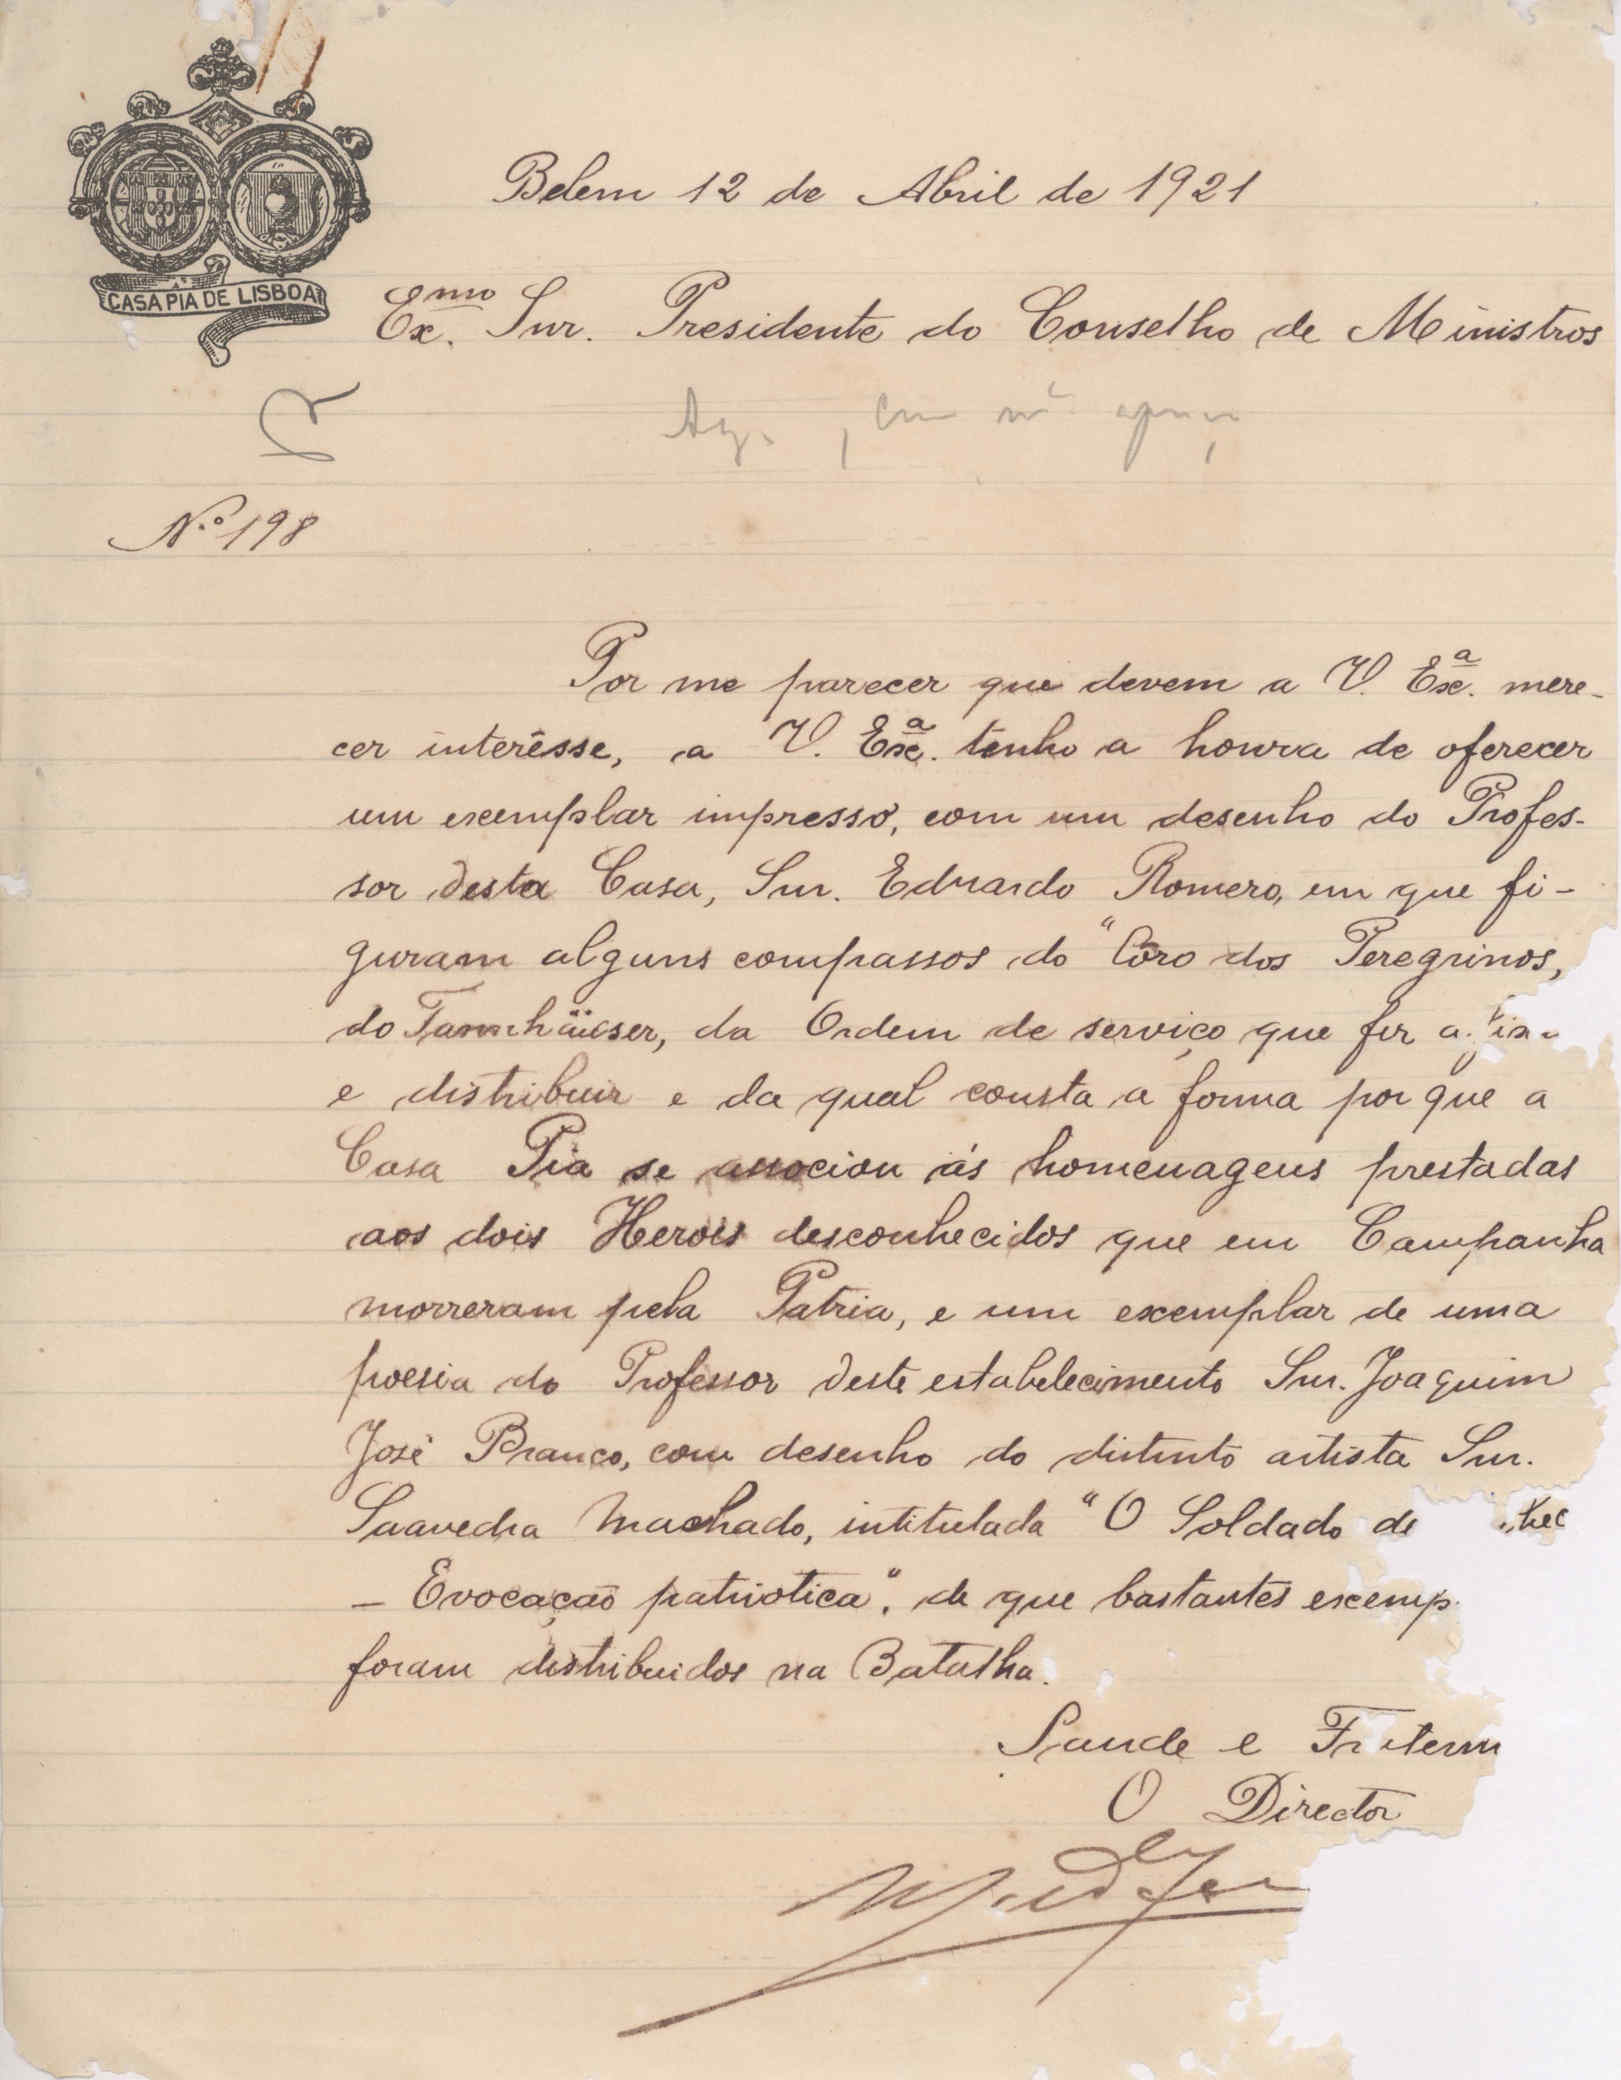 CASA PIA DE LISBOA
Belem 12 de Abril de 1921
Ex.mo Snr. Presidente do Conselho de Ministros
N.º 198
Por me parecer que devem a V. Ex.a mere-
cer interêsse, a V. Ex.a tenho a honra de oferecer
um exemplar impresso, com um desenho do Profes-
sor desta Casa, Snr. Eduardo Romero, em que fi-
guram alguns compassos do "Côro dos Peregrinos,
do Tannhäuser, da Ordem de serviço que fiz
e distribuir e da qual consta a forma por que a
Casa Pia se associou ás homenagens prestadas
aos dois Herois desconhecidos que em Campanha
morreram pela Patria, e um exemplar de uma
poesia do Professor deste estabelecimento Snr. Joaquim
José Branco, com desenho do distinto artista Snr.
Saavedra Machado, intitulada "O Soldado de
- Evocação patriotica", de que bastantes exemp
foram distribuidos na Batalha.
Saude e Fr tern
O Director